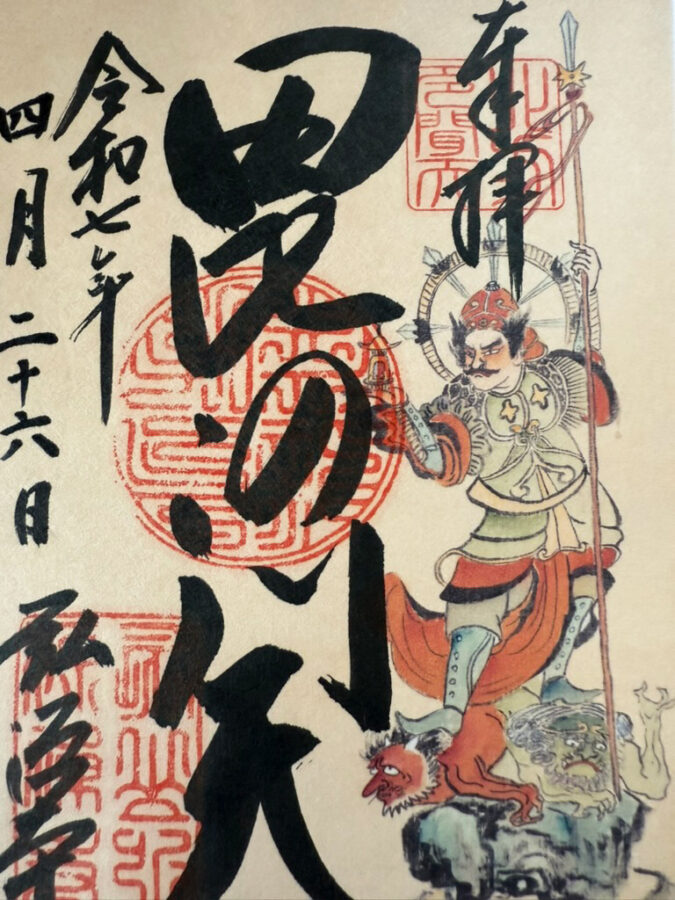 奉拝
毘沙門天
令和七年
四月二十六日
弘法寺